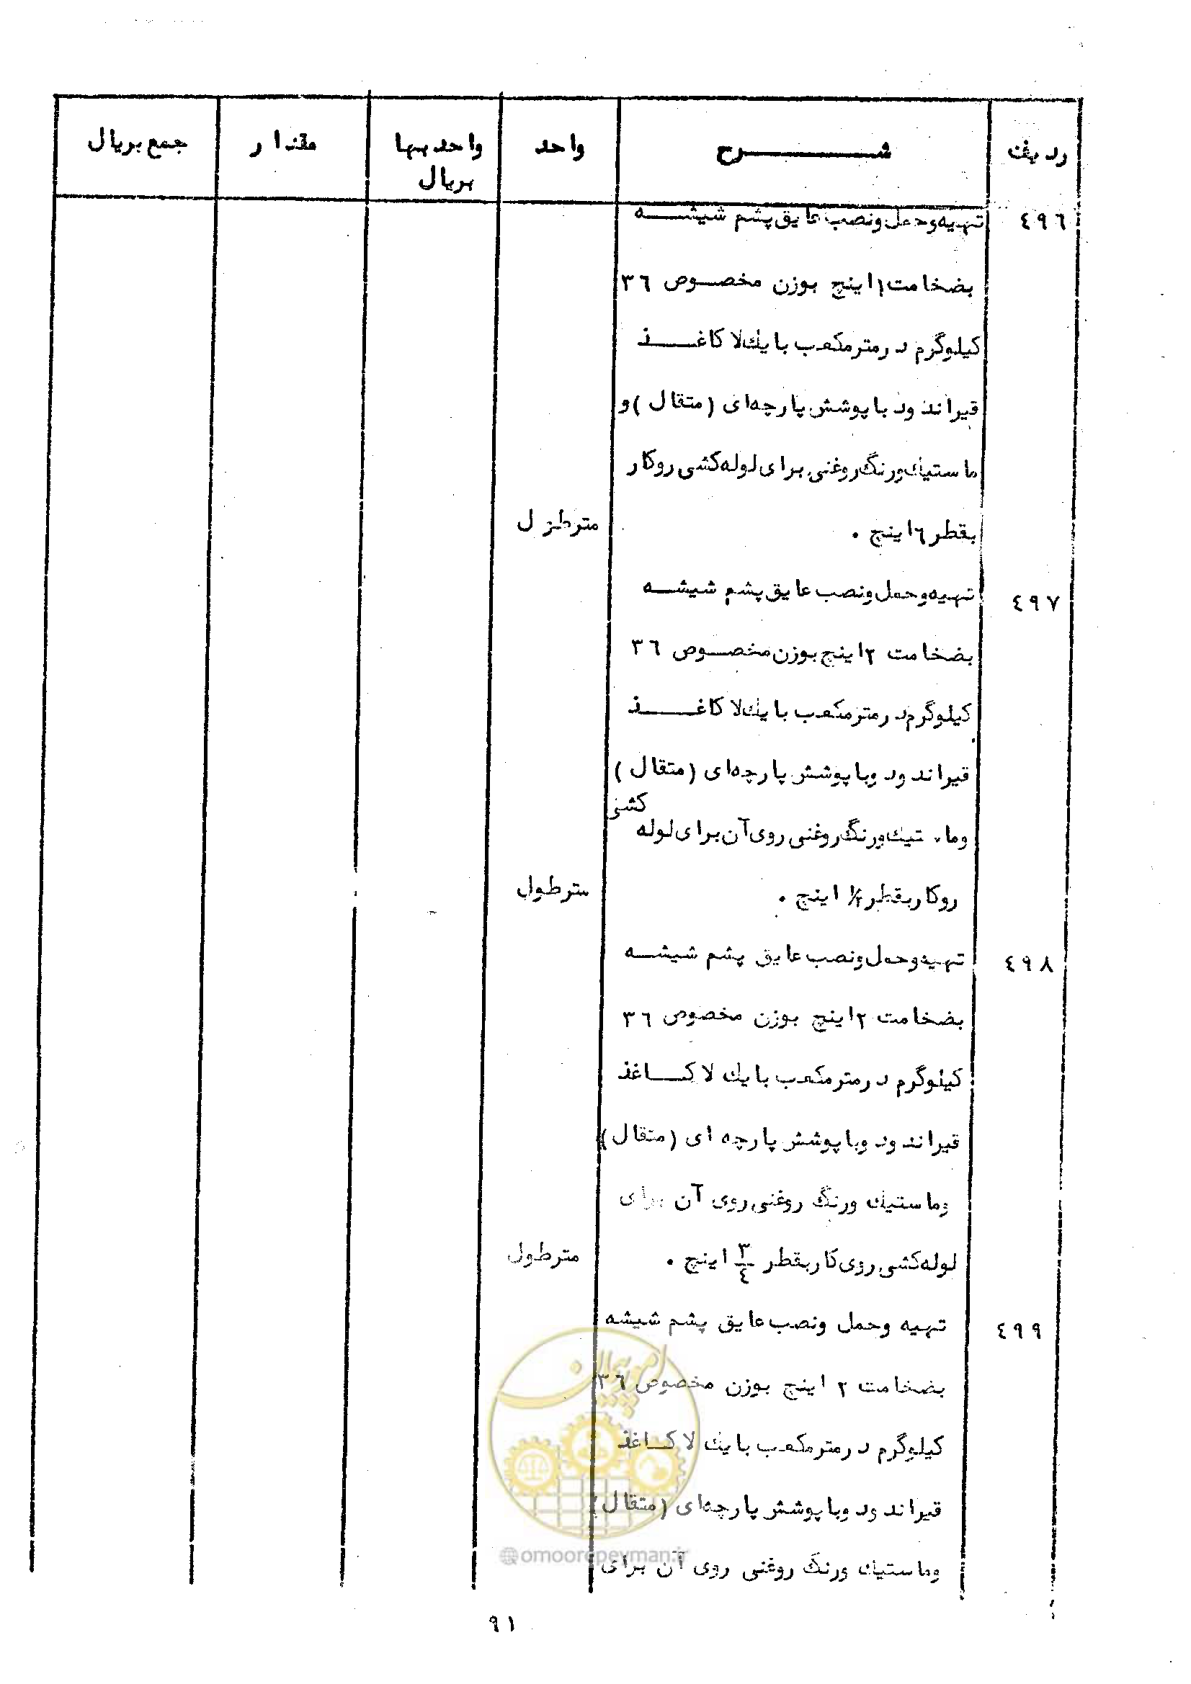 ردیف شرح واحد واحد بها بریال مقدار جمع بریال
٤٩٦ تهیه وحمل ونصب عایق پشم شیشه
بضخامت ۱ اینچ بوزن مخصوص ٣٦
کیلوگرم در مترمکعب با یك لا کاغذ
قیراندود با پوشش پارچه‌ای (متقال) و
ماستیك ورنگ روغنی برای لوله کشی روکار
بقطر ٦ اینچ . مترطول
٤٩٧ تهیه وحمل ونصب عایق پشم شیشه
بضخامت ٢ اینچ بوزن مخصوص ٣٦
کیلوگرم در مترمکعب با یك لا کاغذ
قیراندود وبا پوشش پارچه‌ای (متقال)
وماستیك ورنگ روغنی روی آن برای لوله کشی
روکار بقطر ½ اینچ . مترطول
٤٩٨ تهیه وحمل ونصب عایق پشم شیشه
بضخامت ٢ اینچ بوزن مخصوص ٣٦
کیلوگرم در مترمکعب با یك لا کاغذ
قیراندود وبا پوشش پارچه ای (متقال)
وماستیك ورنگ روغنی روی آن برای
لوله کشی روی کار بقطر ٣/٤ اینچ . مترطول
٤٩٩ تهیه وحمل ونصب عایق پشم شیشه
بضخامت ٢ اینچ بوزن مخصوص ٣٦
کیلوگرم در مترمکعب با یك لا کاغذ
قیراندود وبا پوشش پارچه‌ای (متقال)
وماستیك ورنگ روغنی روی آن برای
امور پیمان
@omoorepeyman.ir
٩١